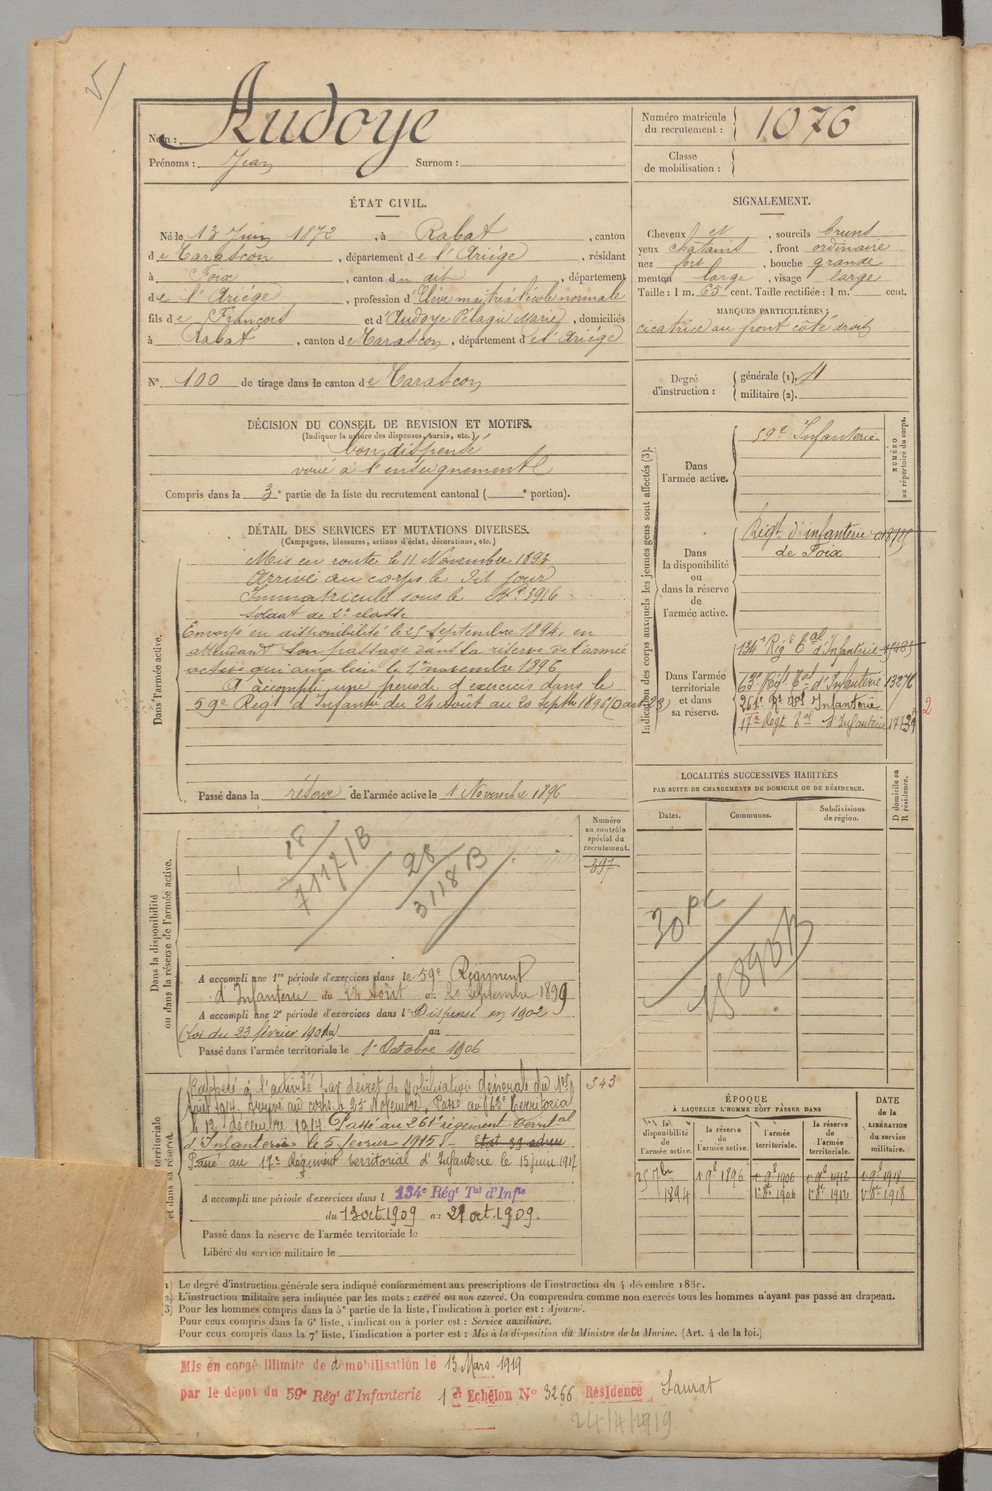 5/
Nom : Audoye
Prénoms : Jean Surnom :
Numéro matricule du recrutement : 1076
Classe de mobilisation :
ÉTAT CIVIL.
Né le 13 Juin 1872, à Rabat, canton
de Tarascon, département de l'Ariége, résidant
à Foix, canton du dit, département
de l'Ariége, profession d'Elève maitre à l'école normale
fils de François et d'Audoye Pélagie Marie, domiciliés
à Rabat, canton de Tarascon, département de l'Ariége
N° 100 de tirage dans le canton de Tarascon
SIGNALEMENT.
Cheveux et, sourcils bruns
yeux chatains, front ordinaire
nez fort, bouche grande
menton large, visage large
Taille : 1 m. 65 cent. Taille rectifiée : 1 m. cent.
MARQUES PARTICULIÈRES :
cicatrice au front côté droit
Degré d'instruction : générale (1). 4
militaire (2).
DÉCISION DU CONSEIL DE REVISION ET MOTIFS.
(Indiquer la nature des dispenses, sursis, etc.)
bon dispensé
voué à l'enseignement
Compris dans la 3e partie de la liste du recrutement cantonal ( e portion).
DÉTAIL DES SERVICES ET MUTATIONS DIVERSES.
(Campagnes, blessures, actions d'éclat, décorations, etc.)
Dans l'armée active.
Mis en route le 11 Novembre 1893
Arrivé au corps le dit jour
Immatriculé sous le N° 3916
Soldat de 2e classe
Envoyé en disponibilité le 25 Septembre 1894, en
attendant son passage dans la réserve de l'armée
active qui aura lieu le 1er novembre 1896
A accompli une période d'exercices dans le
59e Régt d'Infantie du 24 Août au 20 Septbre 1896
Passé dans la réserve de l'armée active le 1 Novembre 1896
Indication des corps auxquels les jeunes gens sont affectés (3).
NUMÉRO au répertoire du corps.
Dans l'armée active.
59e Infanterie
Dans la disponibilité ou dans la réserve de l'armée active.
Régt d'infanterie
de Foix
Dans l'armée territoriale et dans sa réserve.
134e Rég Tal d'Infanterie
63e Régt Tal d'Infanterie 13276
261e Rt Tal Infanterie
17e Régt Tal d'Infanterie
2
LOCALITÉS SUCCESSIVES HABITÉES
PAR SUITE DE CHANGEMENTS DE DOMICILE OU DE RÉSIDENCE.
Dates. Communes. Subdivisions de région. D domicile ou R résidence.
30 PC
15890B
Dans la disponibilité ou dans la réserve de l'armée active.
Numéro au contrôle spécial du recrutement.
397
18
7117/B
28
3118 B
A accompli une 1re période d'exercices dans le 59e Régiment
d'Infanterie du 24 Août au 20 Septembre 1899
A accompli une 2e période d'exercices dans l Dispensé en 1902
(Loi du 23 février 1901) au
Passé dans l'armée territoriale le 1er Octobre 1906
territoriale et dans sa réserve.
543
Rappelé à l'activité par décret de mobilisation générale du 1er
Août 1914. Arrivé au corps le 25 Novembre. Passé au 63e Territorial
le 13 décembre 1914. Passé au 261e régiment territal
d'Infanterie le 5 février 1915.
Passé au 17e Régiment territorial d'Infanterie le 15 juin 1917
A accompli une période d'exercices dans l 134e Régt Tal d'Infie
du 13 oct. 1909 au 21 oct. 1909.
Passé dans la réserve de l'armée territoriale le
Libéré du service militaire le
ÉPOQUE
À LAQUELLE L'HOMME DOIT PASSER DANS
DATE de la LIBÉRATION du service militaire.
la disponibilité de l'armée active. la réserve de l'armée active. l'armée territoriale. la réserve de l'armée territoriale.
25 7bre 1894
1 9bre 1896
1 9bre 1906
1 9bre 1912
1 9bre 1918
1 8bre 1906
1 8bre 1912
1 8bre 1918
1) Le degré d'instruction générale sera indiqué conformément aux prescriptions de l'instruction du 4 décembre 1889.
2) L'instruction militaire sera indiquée par les mots : exercé ou non exercé. On comprendra comme non exercés tous les hommes n'ayant pas passé au drapeau.
3) Pour les hommes compris dans la 5e partie de la liste, l'indication à porter est : Ajourné.
Pour ceux compris dans la 6e liste, l'indication à porter est : Service auxiliaire.
Pour ceux compris dans la 7e liste, l'indication à porter est : Mis à la disposition du Ministre de la Marine. (Art. 4 de la loi.)
Mis en congé illimité de démobilisation le 13 Mars 1919
par le dépot du 59e Régt d'Infanterie 1er Echelon N° 3266 Résidence Saurat
24/4/1919